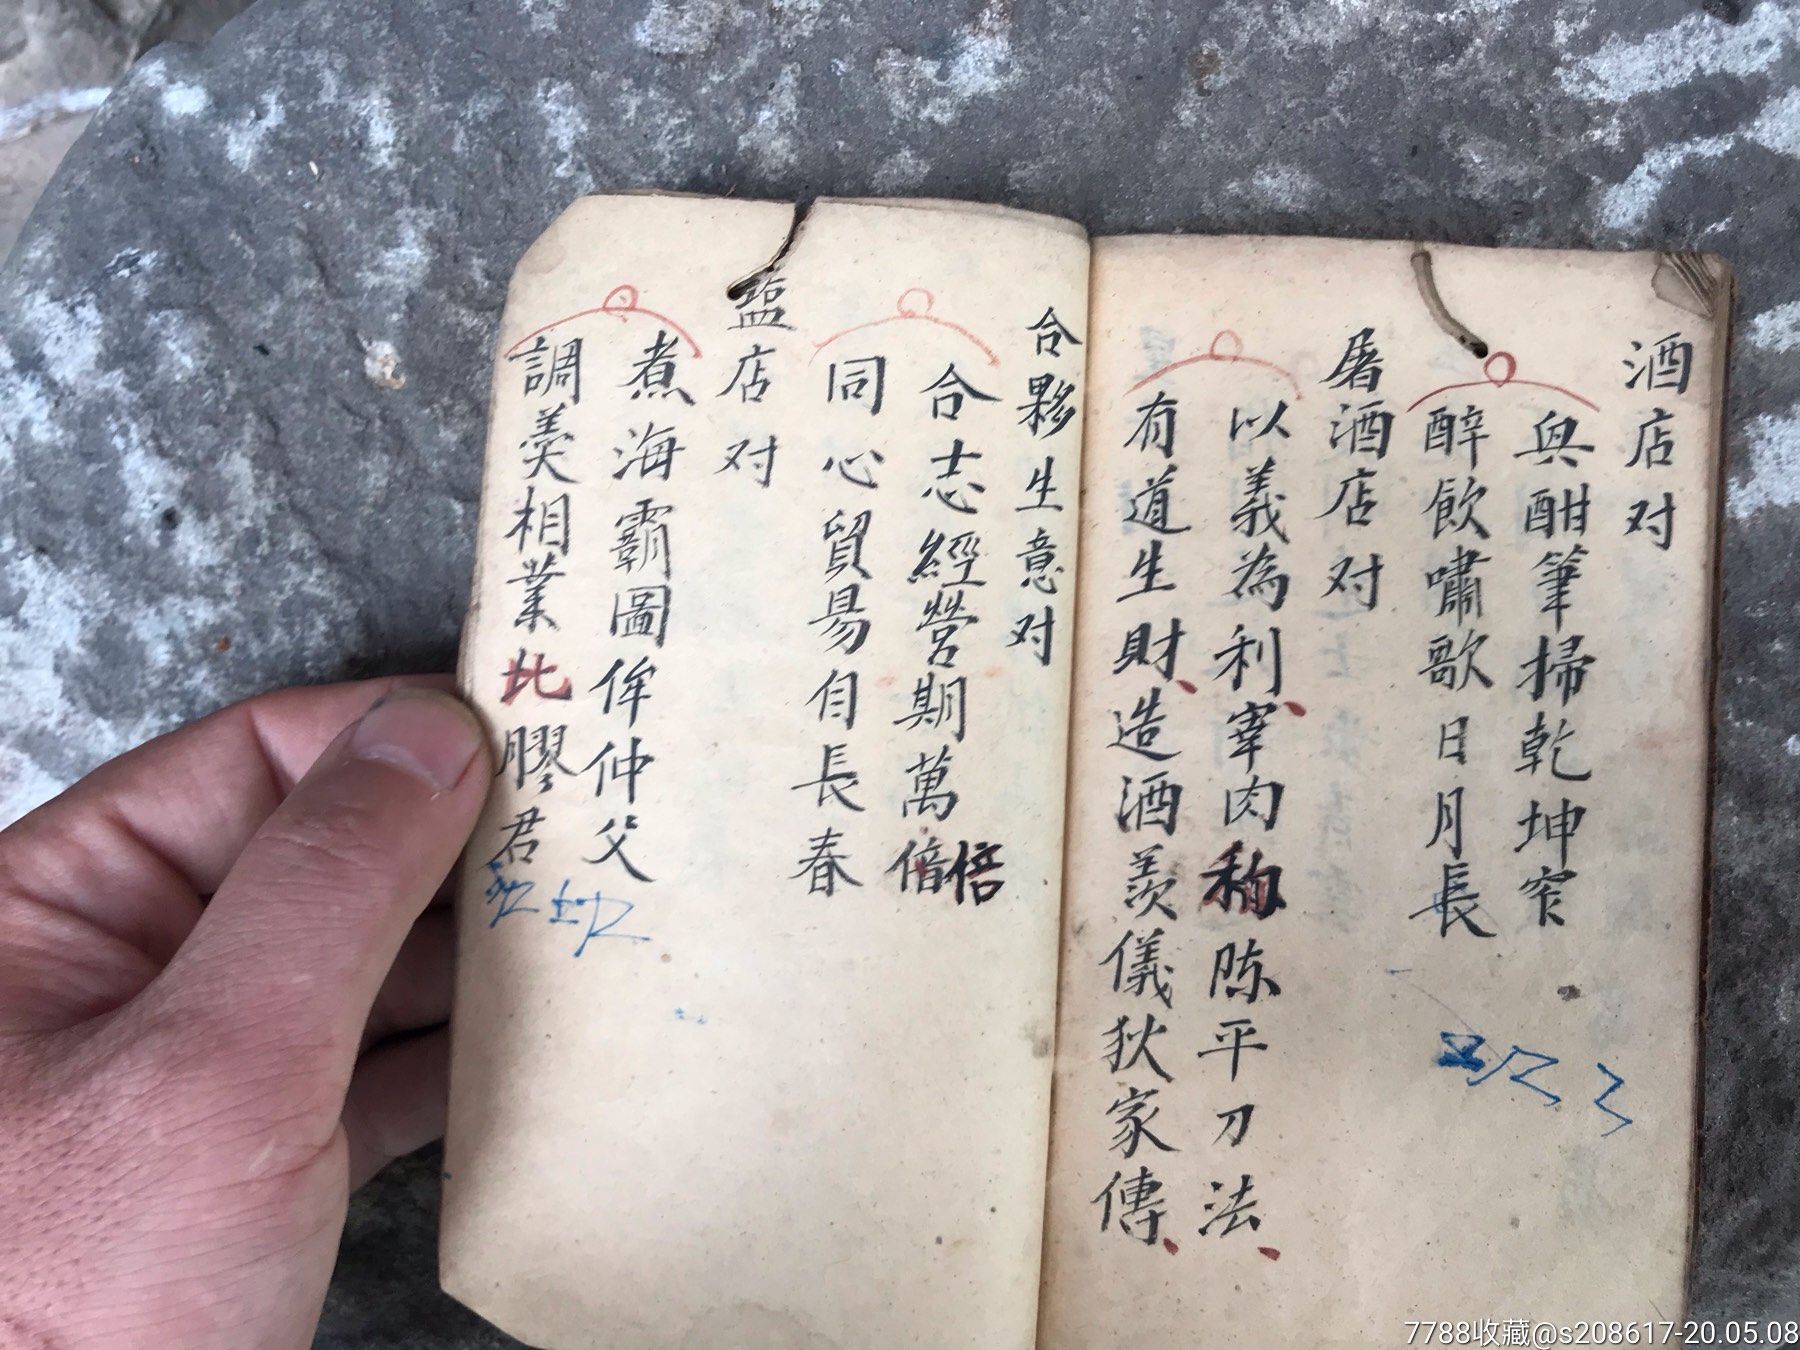 酒店对
與酣筆掃乾坤窄
醉飲嘯歌日月長
屠酒店对
以義為利宰肉称陈平刀法
有道生財造酒羨儀狄家傳
合夥生意对
合志經營期萬倍倍
同心貿易自長春
盐店对
煮海霸圖侔仲父
調羹相業比膠君
7788收藏@s208617-20.05.08